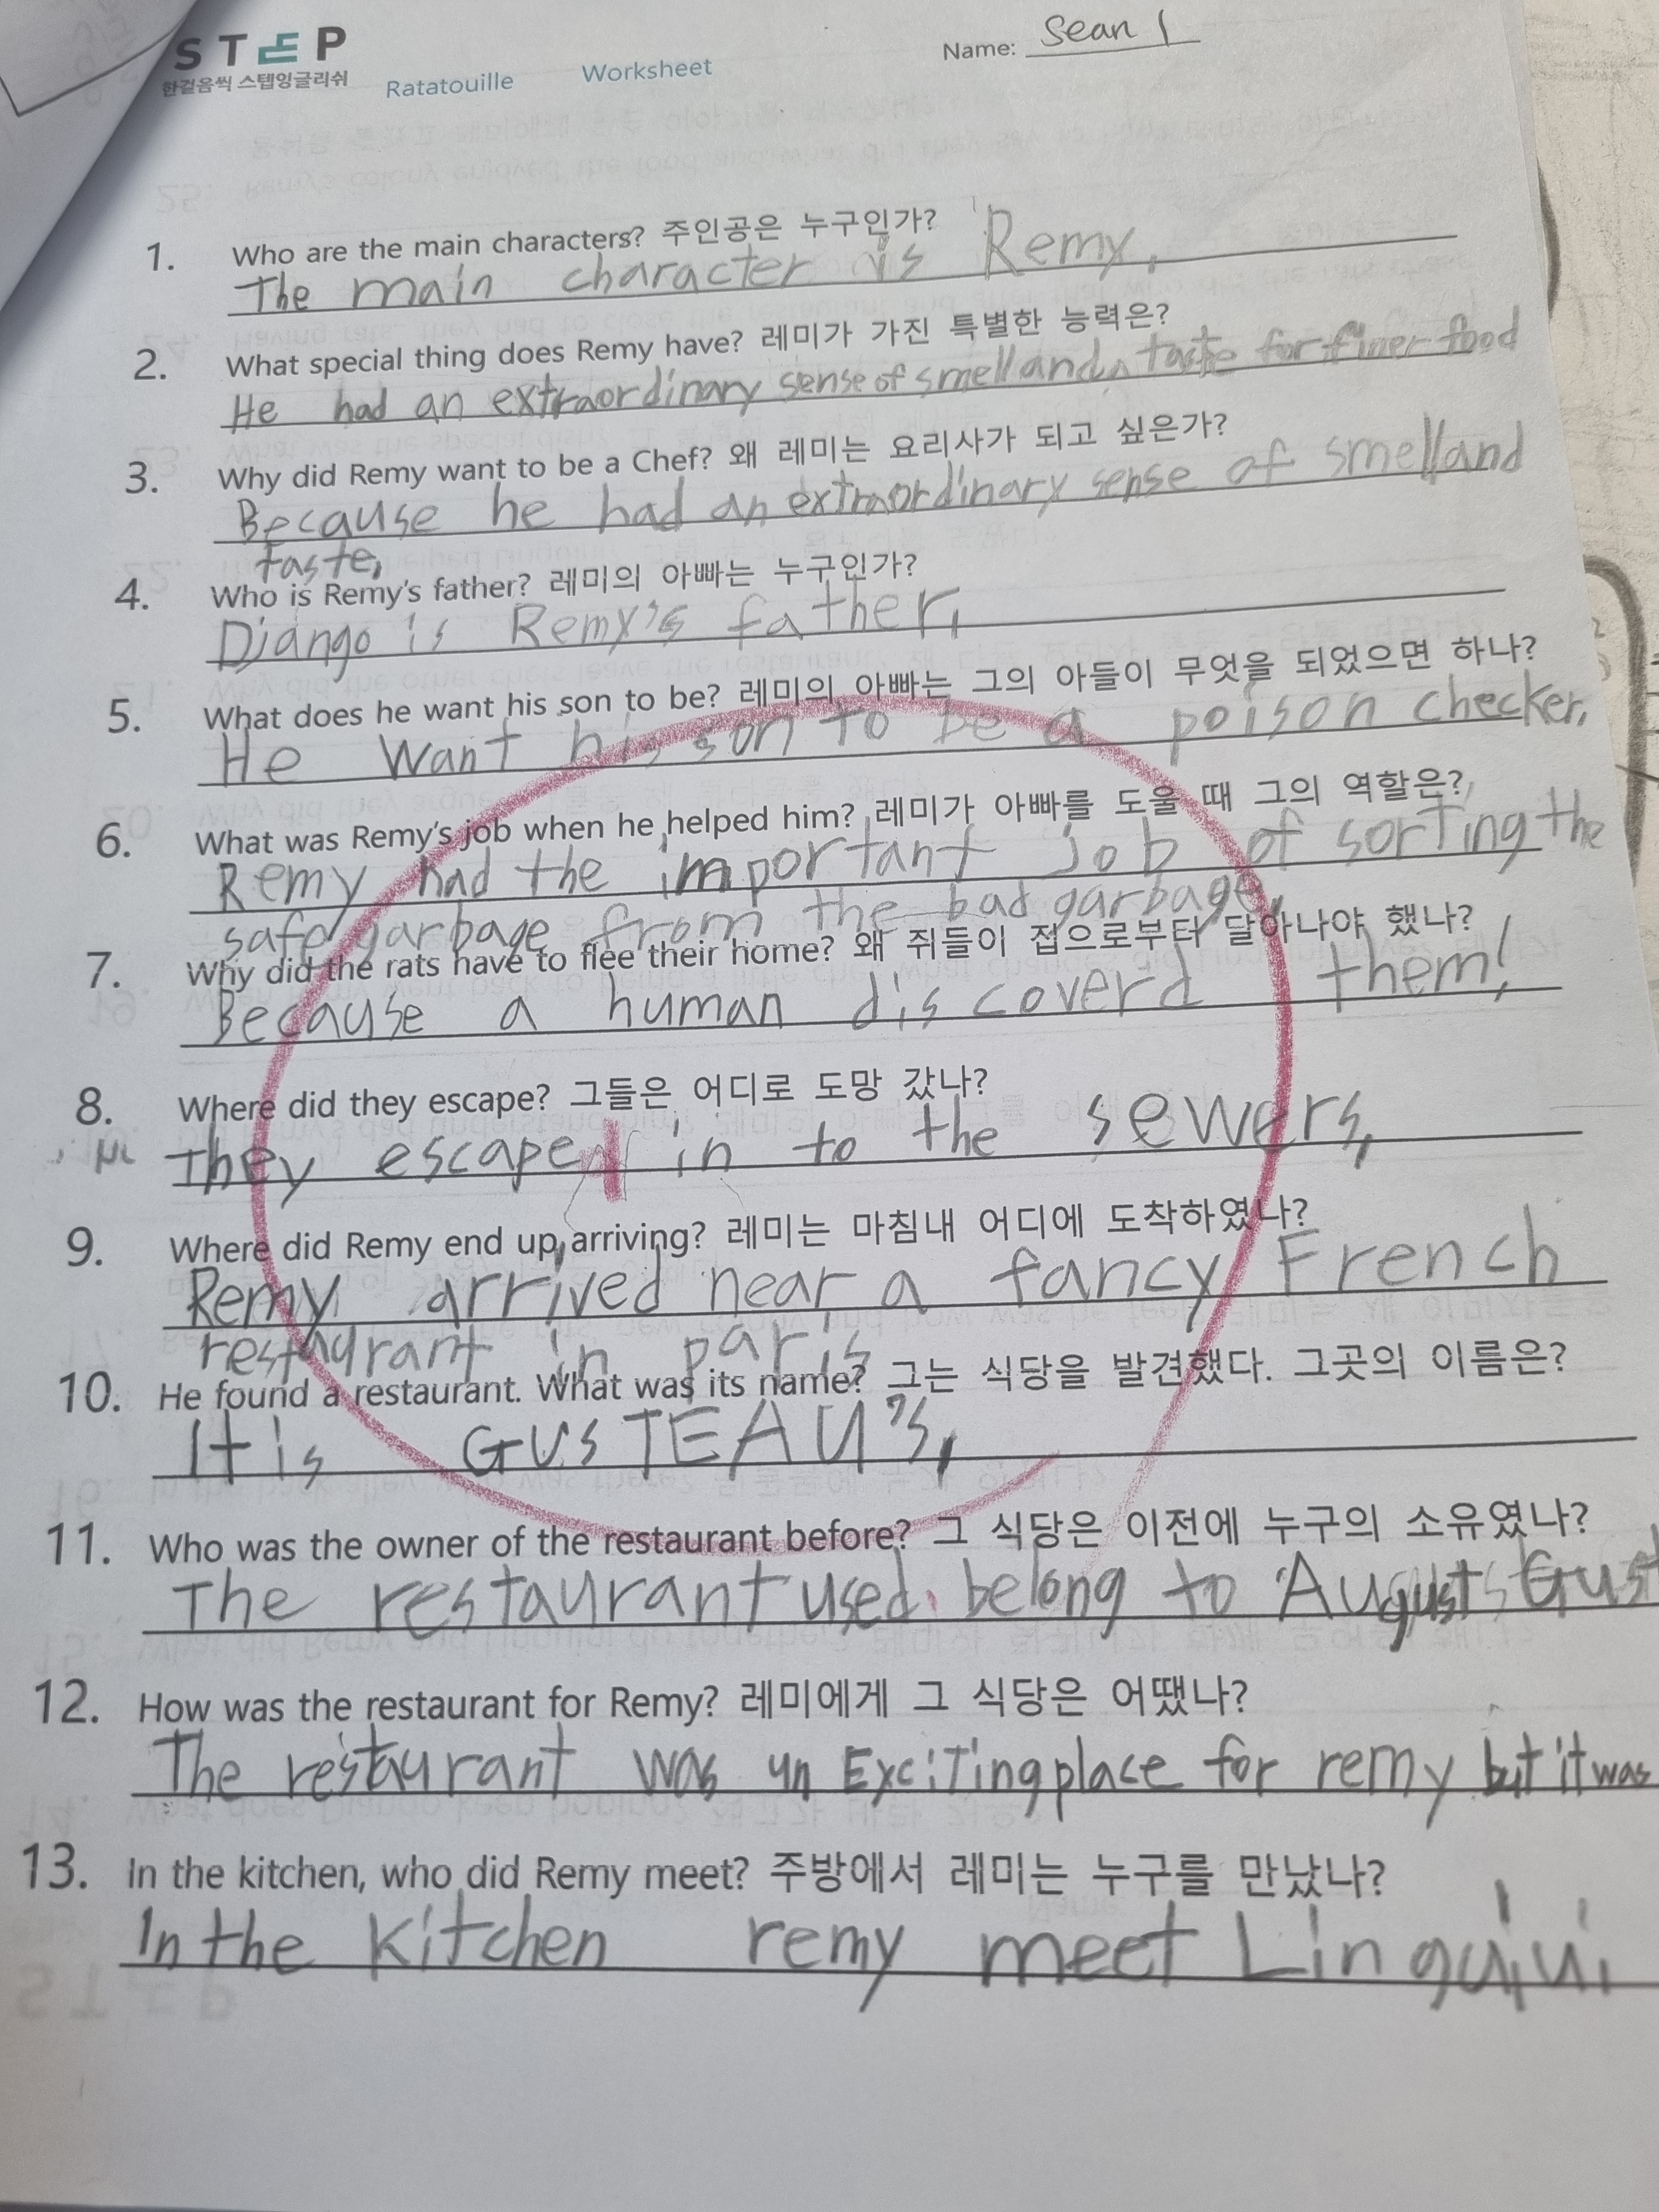 STEP
한걸음씩 스텝잉글리쉬
Ratatouille Worksheet Name: Sean 1
1. Who are the main characters? 주인공은 누구인가?
The main character is Remy.
2. What special thing does Remy have? 레미가 가진 특별한 능력은?
He had an extraordinary sense of smell and a taste for finer food
3. Why did Remy want to be a Chef? 왜 레미는 요리사가 되고 싶은가?
Because he had an extraordinary sense of smell and
taste.
4. Who is Remy's father? 레미의 아빠는 누구인가?
Django is Remy's father.
5. What does he want his son to be? 레미의 아빠는 그의 아들이 무엇을 되었으면 하나?
He want his son to be a poison checker.
6. What was Remy's job when he helped him? 레미가 아빠를 도울 때 그의 역할은?
Remy had the important job of sorting the
safe garbage from the bad garbage.
7. Why did the rats have to flee their home? 왜 쥐들이 접으로부터 달아나야 했나?
Because a human discoverd them!
8. Where did they escape? 그들은 어디로 도망 갔나?
They escape in to the sewers.
9. Where did Remy end up arriving? 레미는 마침내 어디에 도착하였나?
Remy arrived near a fancy French
restaurant in paris
10. He found a restaurant. What was its name? 그는 식당을 발견했다. 그곳의 이름은?
It is GUSTEAU's.
11. Who was the owner of the restaurant before? 그 식당은 이전에 누구의 소유였나?
The restaurant used belong to August Gust
12. How was the restaurant for Remy? 레미에게 그 식당은 어땠나?
The restaurant was an Exciting place for remy but it was
13. In the kitchen, who did Remy meet? 주방에서 레미는 누구를 만났나?
In the kitchen remy meet Linguini.